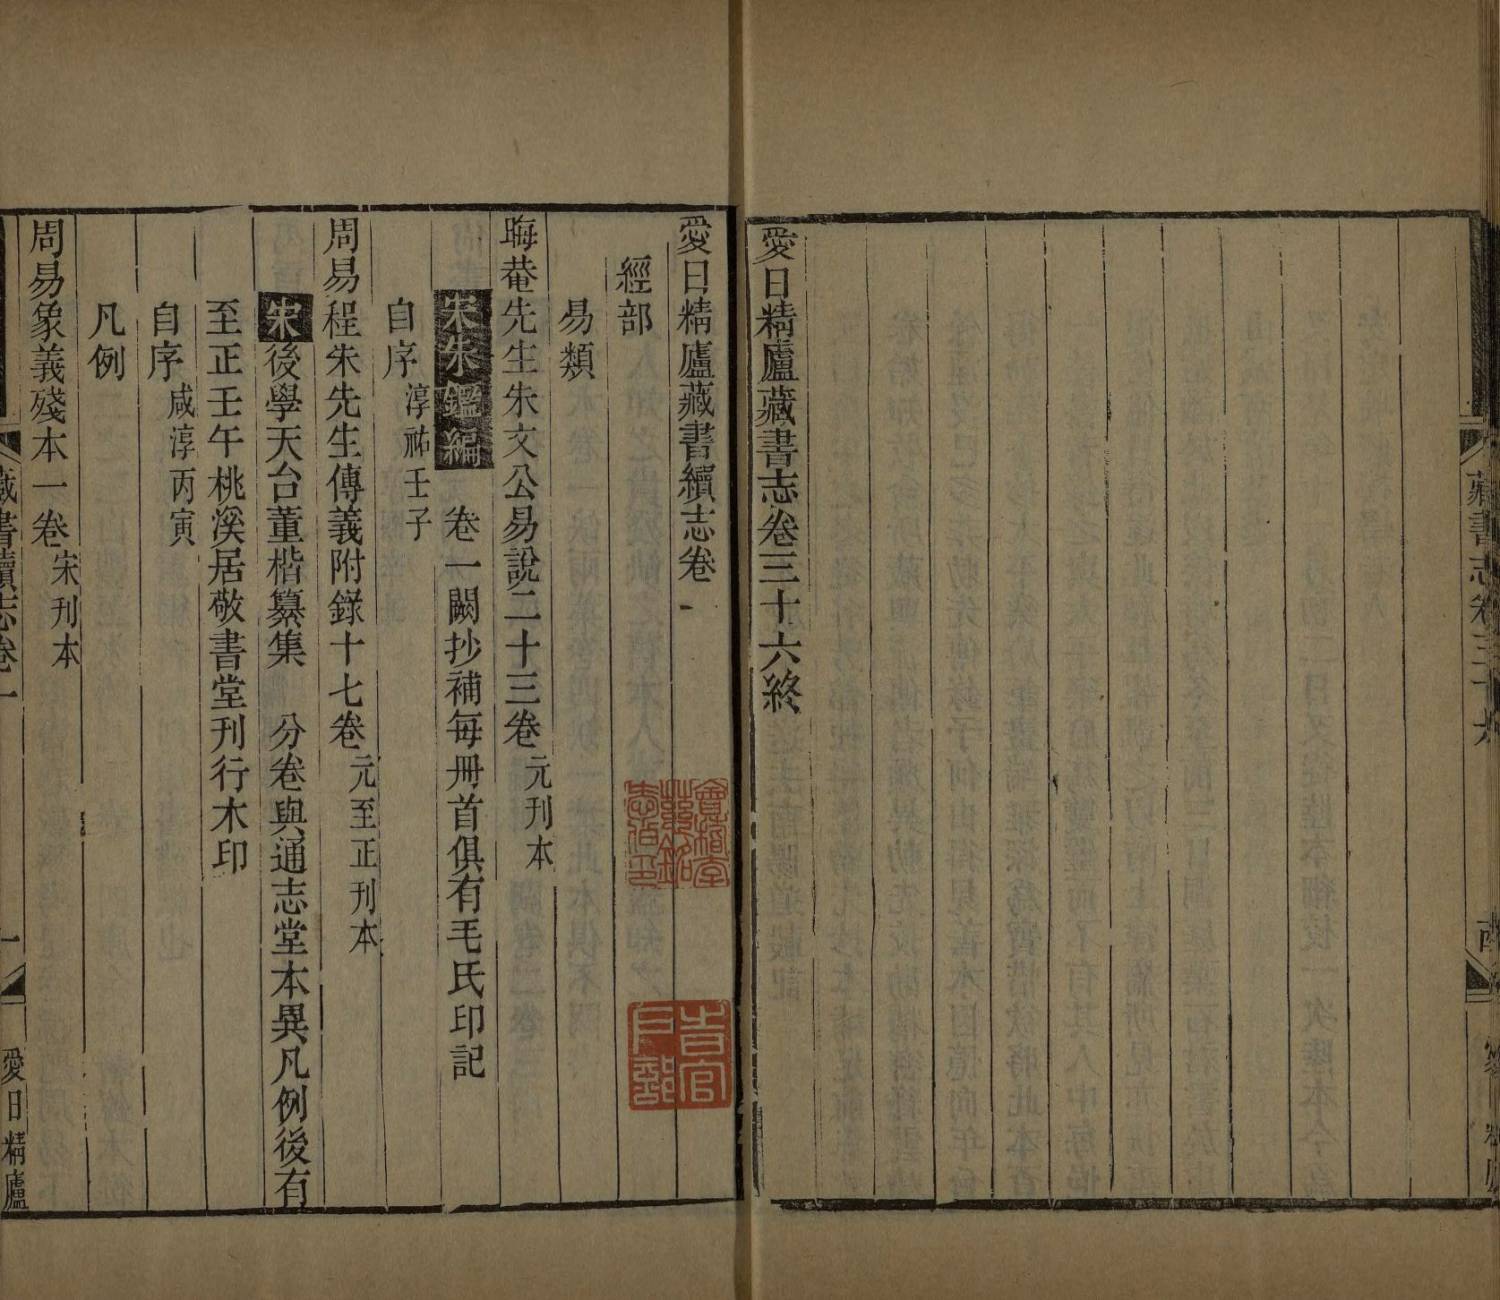 愛日精廬藏書志卷三十六終
愛日精廬藏書續志卷一
經部
易類
晦菴先生朱文公易說二十三卷 元刊本
宋朱鑑編 卷一闕抄補每册首俱有毛氏印記
自序 淳祐壬子
周易程朱先生傳義附錄十七卷 元至正刊本
宋後學天台董楷纂集 分卷與通志堂本異凡例後有
至正壬午桃溪居敬書堂刊行木印
自序 咸淳丙寅
凡例
周易象義殘本一卷 宋刊本
藏書志卷三十六
藏書續志卷一
一
愛日精廬